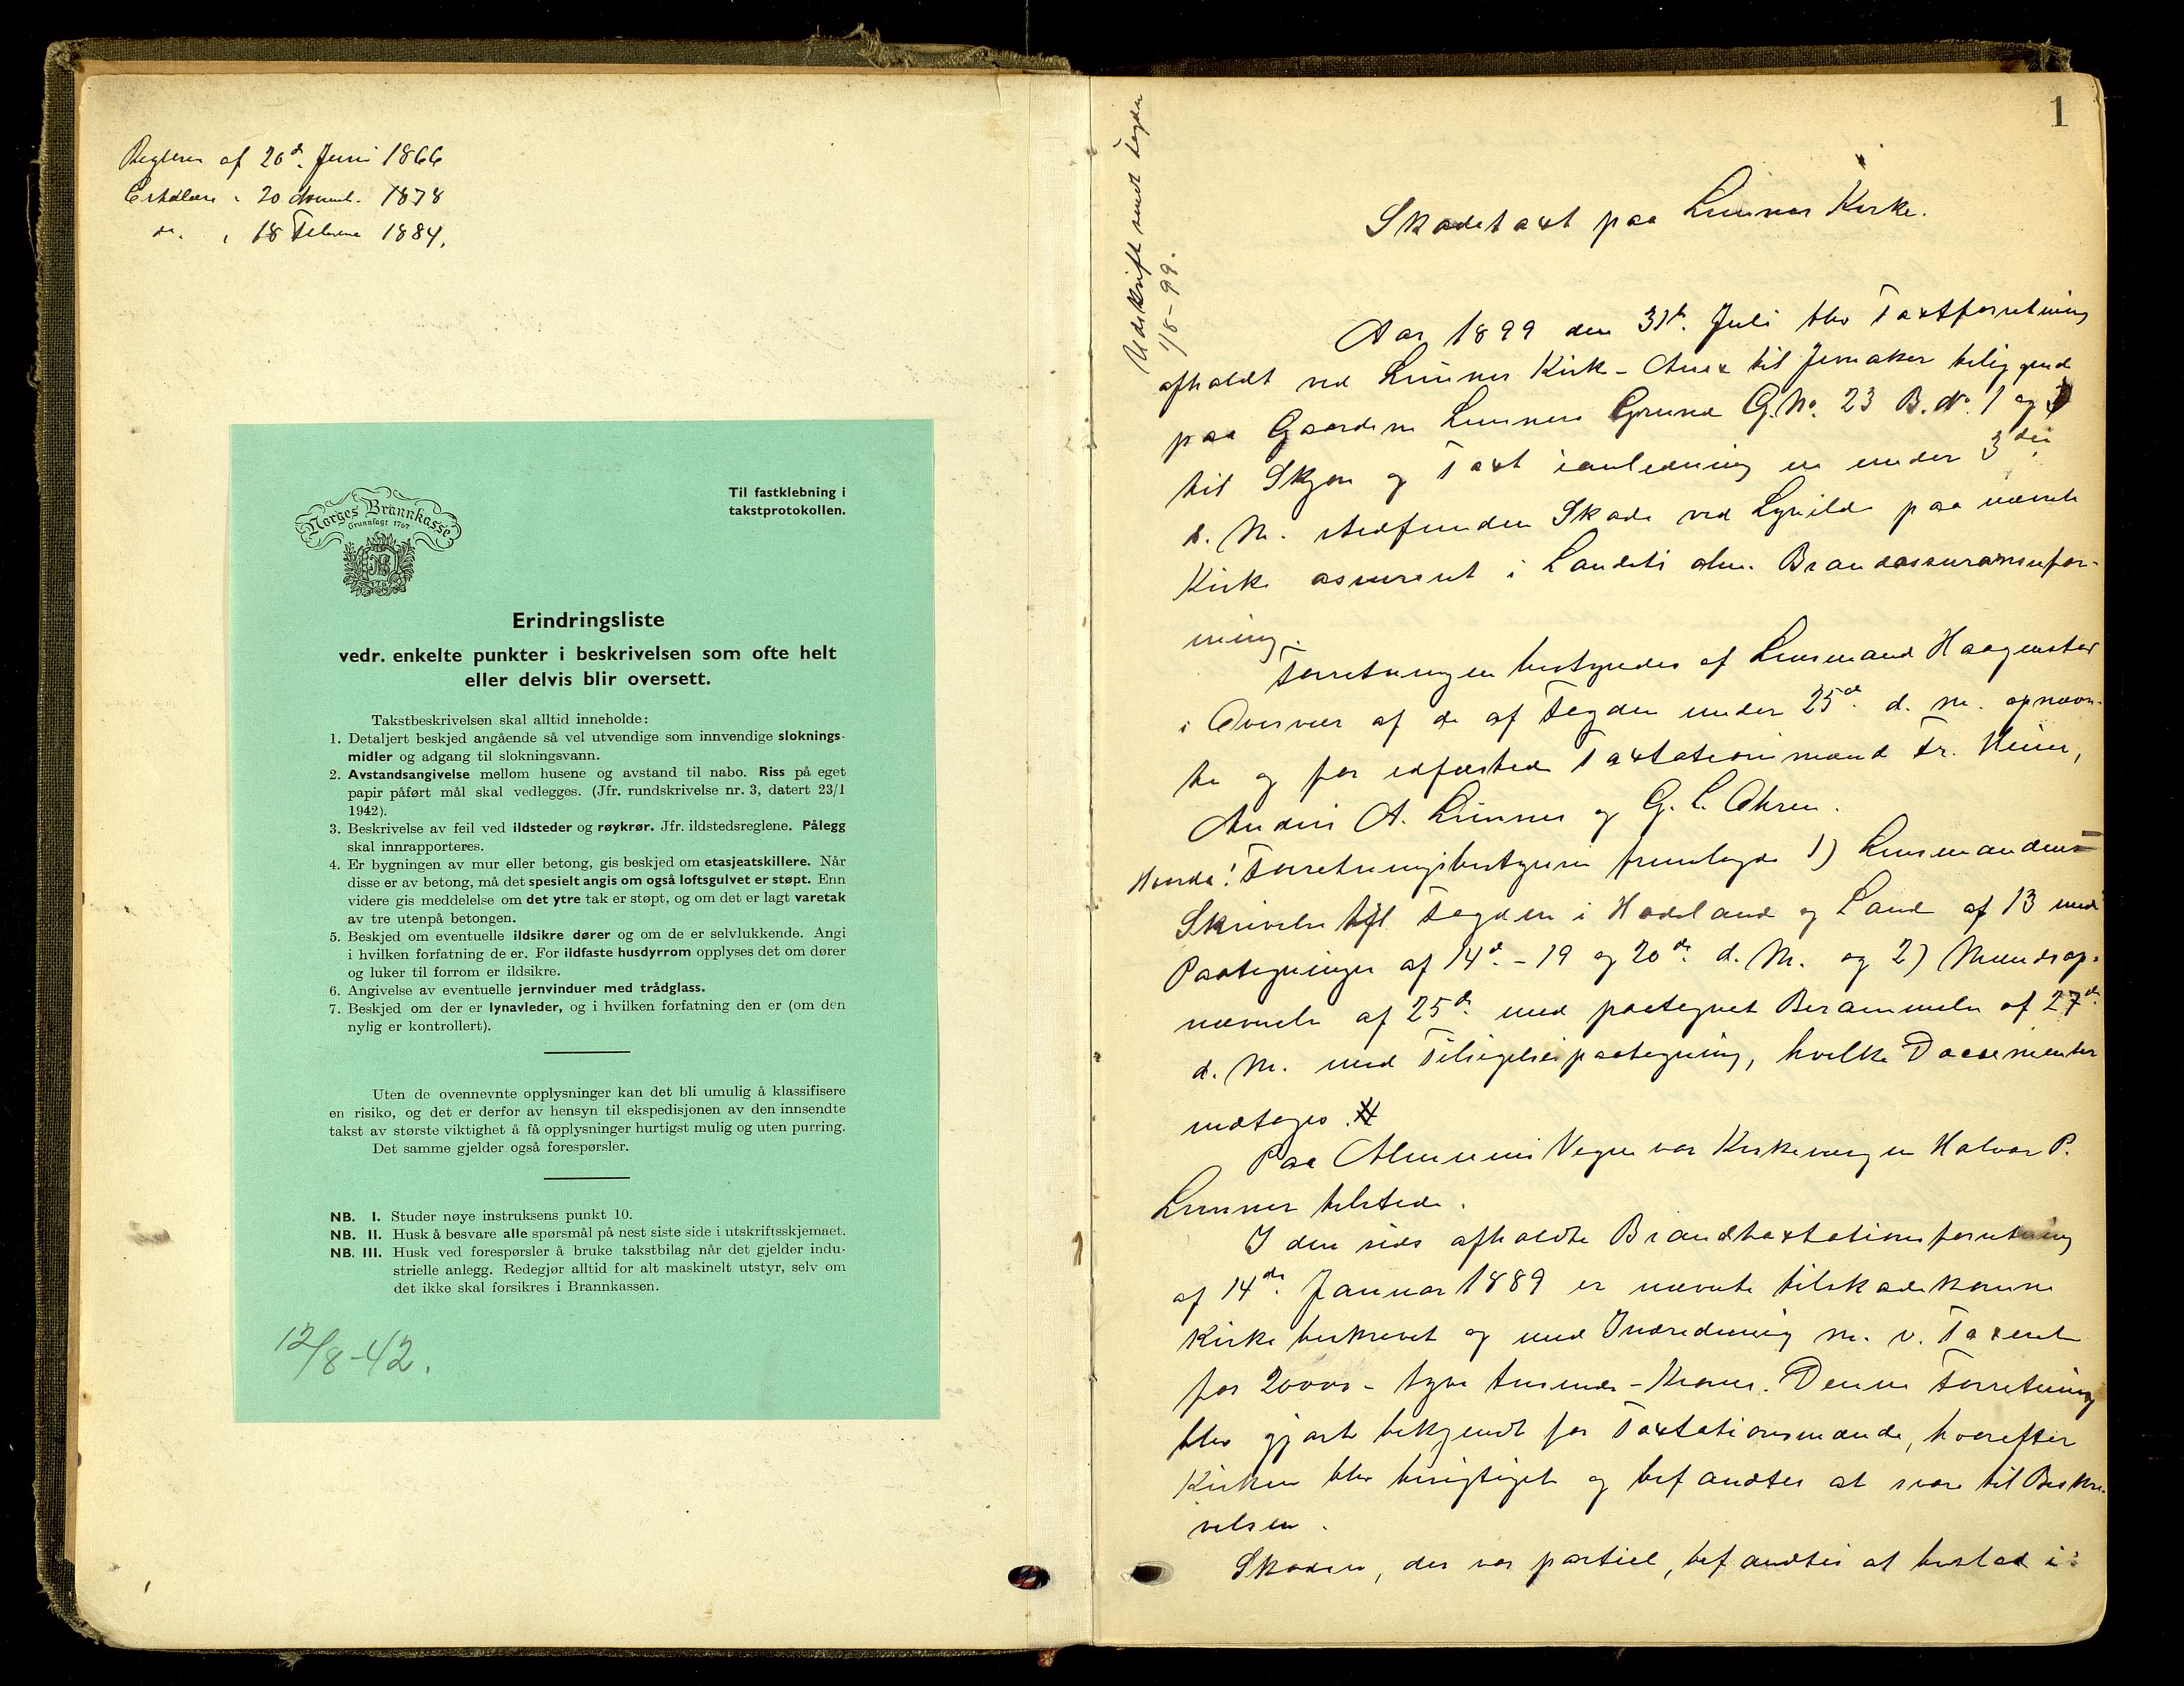 af 20d. Juni 1866
" 20 Novemb. 1878
do. " 18 Februar 1884.
Norges Brannkasse
Grunnlagt 1767
NB
1767
Til fastklebning i
takstprotokollen.
Erindringsliste
vedr. enkelte punkter i beskrivelsen som ofte helt
eller delvis blir oversett.
Takstbeskrivelsen skal alltid inneholde:
1. Detaljert beskjed angående så vel utvendige som innvendige sloknings-
midler og adgang til slokningsvann.
2. Avstandsangivelse mellom husene og avstand til nabo. Riss på eget
papir påført mål skal vedlegges. (Jfr. rundskrivelse nr. 3, datert 23/1
1942).
3. Beskrivelse av feil ved ildsteder og røykrør. Jfr. ildstedsreglene. Pålegg
skal innrapporteres.
4. Er bygningen av mur eller betong, gis beskjed om etasjeatskillere. Når
disse er av betong, må det spesielt angis om også loftsgulvet er støpt. Enn
videre gis meddelelse om det ytre tak er støpt, og om det er lagt varetak
av tre utenpå betongen.
5. Beskjed om eventuelle ildsikre dører og om de er selvlukkende. Angi
i hvilken forfatning de er. For ildfaste husdyrrom opplyses det om dører
og luker til forrom er ildsikre.
6. Angivelse av eventuelle jernvinduer med trådglass.
7. Beskjed om der er lynavleder, og i hvilken forfatning den er (om den
nylig er kontrollert).
Uten de ovennevnte opplysninger kan det bli umulig å klassifisere
en risiko, og det er derfor av hensyn til ekspedisjonen av den innsendte
takst av største viktighet å få opplysninger hurtigst mulig og uten purring.
Det samme gjelder også forespørsler.
NB. I. Studer nøye instruksens punkt 10.
NB. II. Husk å besvare alle spørsmål på nest siste side i utskriftsskjemaet.
NB. III. Husk ved forespørsler å bruke takstbilag når det gjelder indu-
strielle anlegg. Redegjør alltid for alt maskinelt utstyr, selv om
det ikke skal forsikres i Brannkassen.
12/8-42.
1
Udskrift sendt Fogden
1/8-99.
Skadetaxt paa Lunner Kirke.
Aar 1899 den 31te. Juli blev Taxtforretning
afholdt ved Lunner Kirke - Anex til Jevnaker beliggende
paa Gaarden Lunners Grund G.No. 23 B.No. 1 og
til Skjøn og Taxt ianledning en under 3die
d. M. stedfunden Skade ved Lynild paa nævnte
Kirke assureret i Landets alm. Brandassurancefor-
ening.
Forretningen bestyredes af Lensmand Haagenstad
i Overvær af de af Fogden under 25de. d. M. opnævn-
te og før edfæstede Taxtationsmænd Fr. Heier,
Anders A. Lunner og G. L. Ohren.
Forretningsbestyreren fremlagde 1) Lensmandens
Skrivelse til Fogden i Hadeland og Land af 13 med
Paategninger af 14de. - 19 og 20de. d. M. og 2) Mændsop-
nævnelse af 25de. med paategnet Berammelse af 27de.
d. M. med Tilsigelsespaategning, hvilke Documenter
modtages.
Paa Almuens Vegne var Kirkevergen Halvor P.
Lunner tilstede.
I den sidst afholdte Brandtaxtationsforretning
af 14de. Januar 1889 er nævnte tilskadekomne
Kirke beskrevet og med Indredning m. v. Taxeret
for 20000 - tyve tusinde - Kroner. Denne Forretning
blev gjort bekjendt for Taxtationsmænde, hvorefter
Kirken blev besigtiget og befandtes at svare til Beskri-
velsen.
Skaden, der var partiel, befandtes at bestaa i: